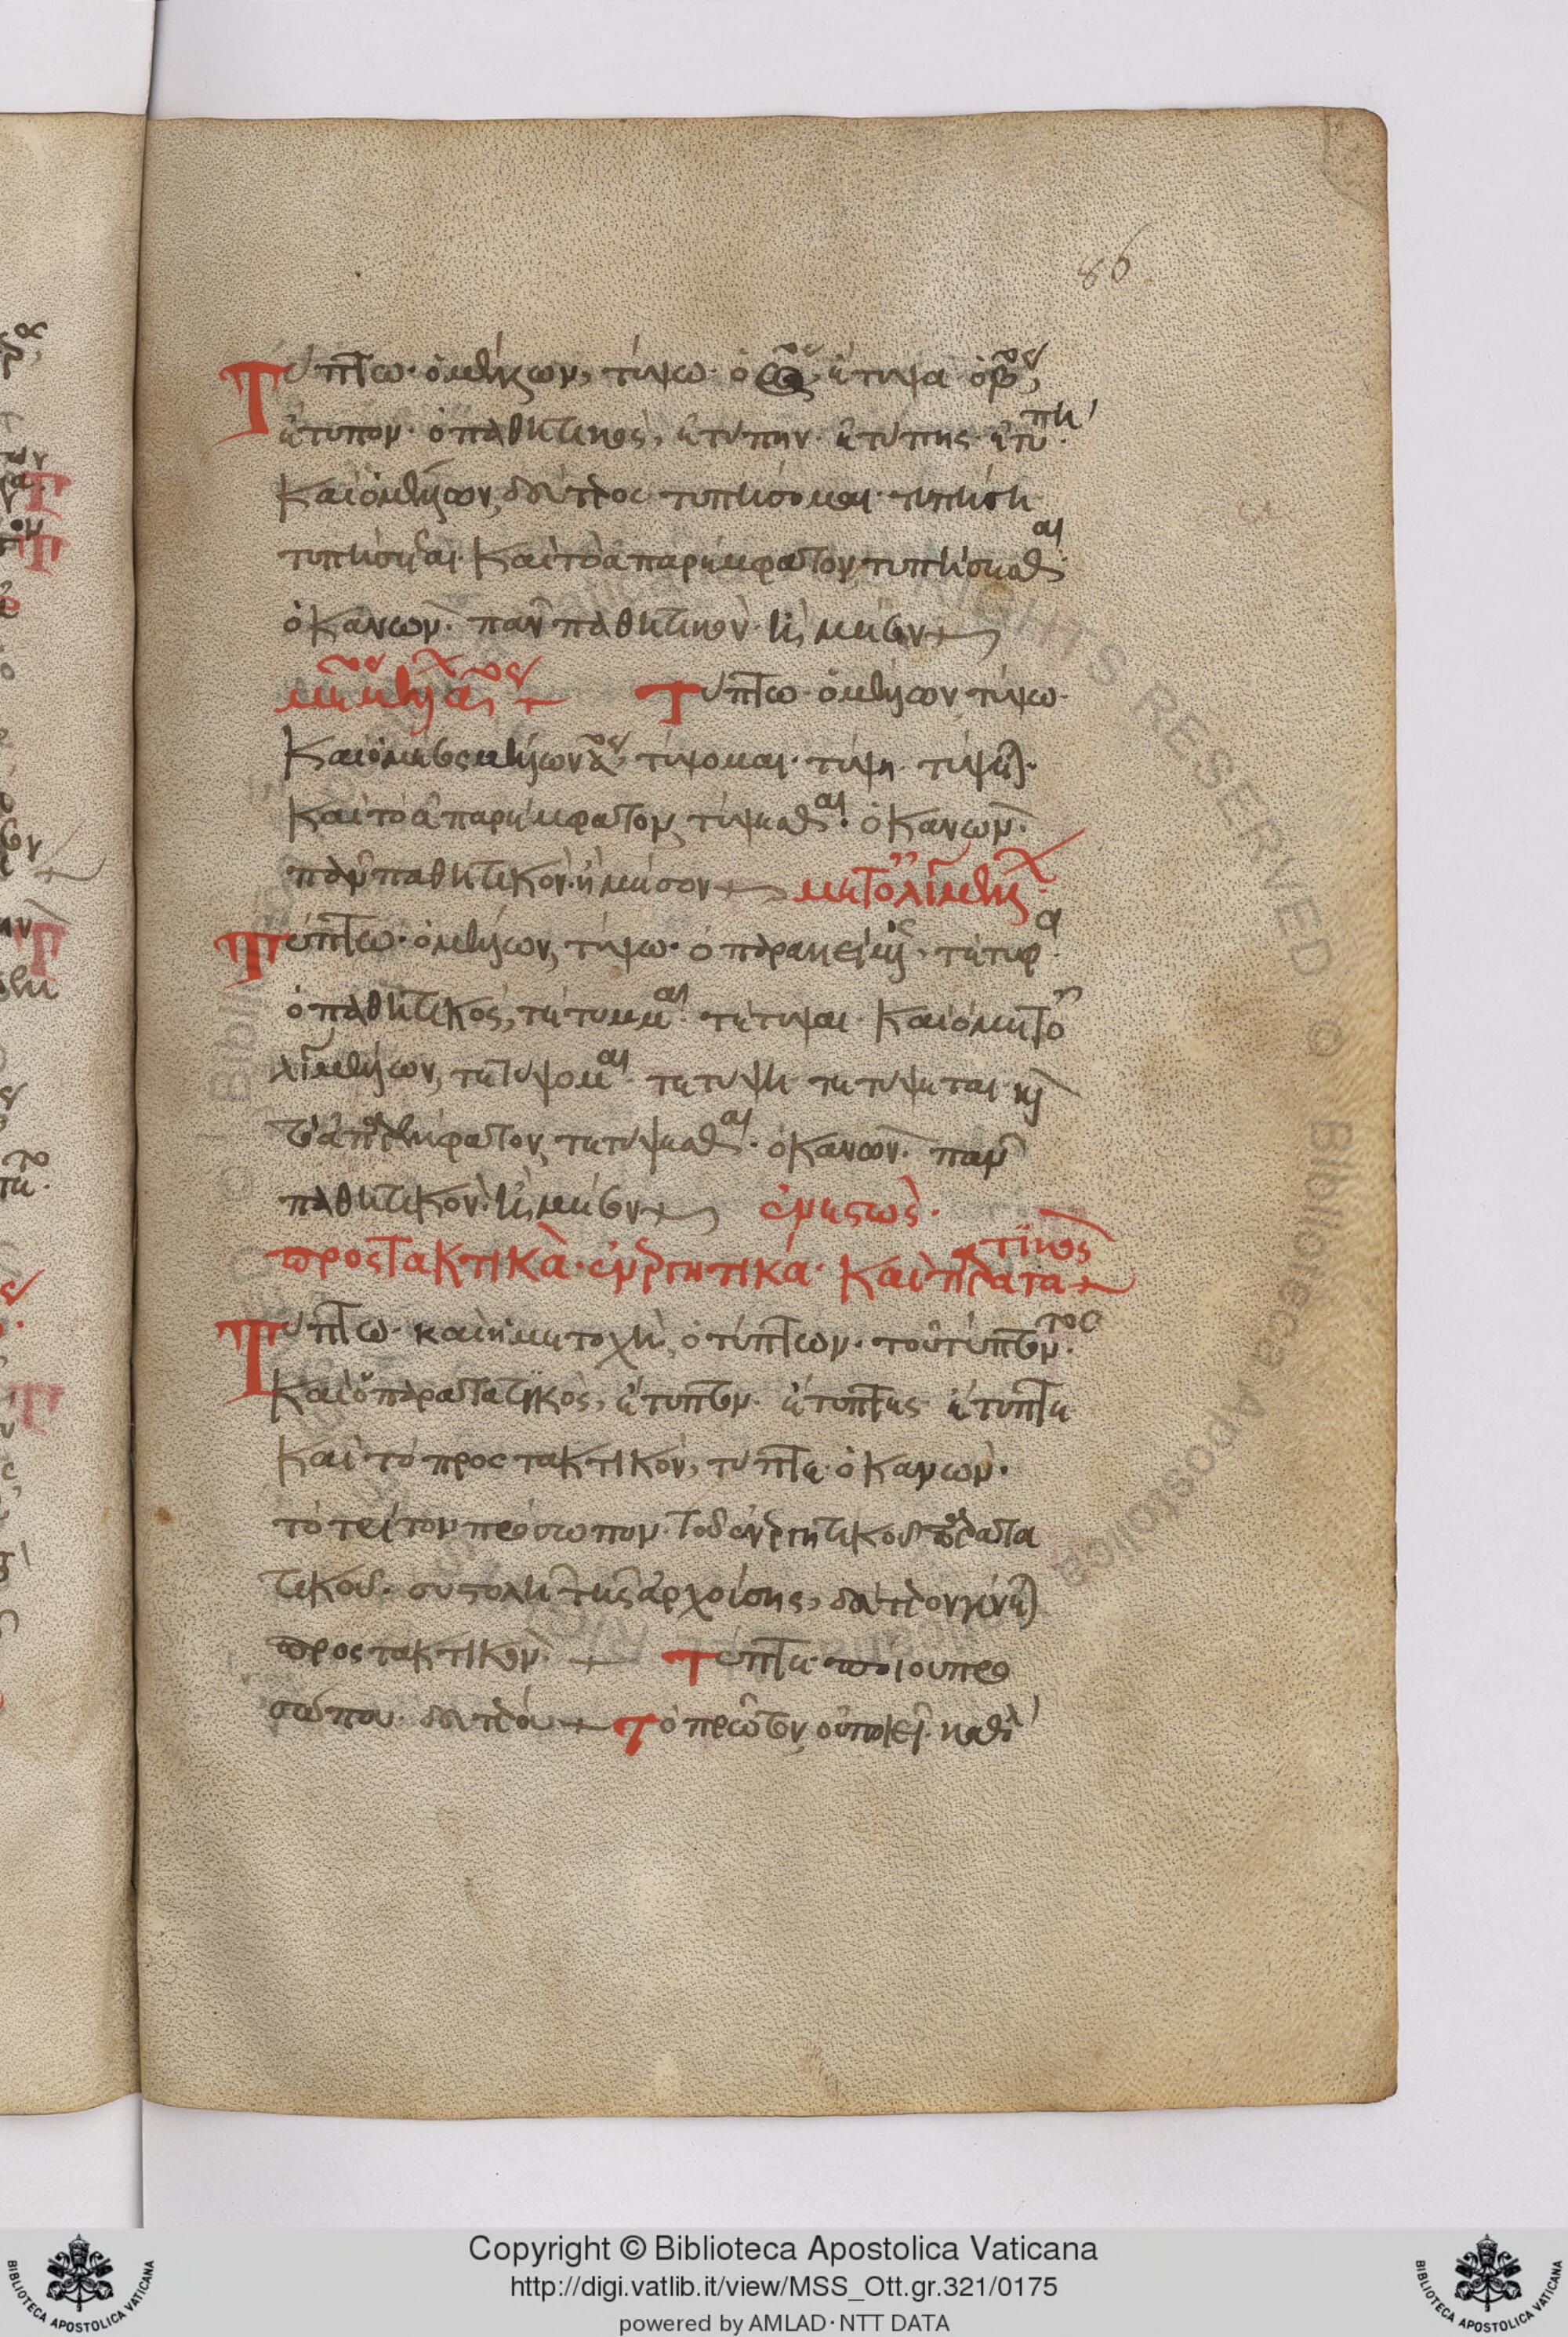 86
Τύπτω· ὁ μέλλων, τύψω· ὁ ἔτυψα ὁ βος,
ἔτυπον· ὁ παθητικὸς, ἐτύπην· ἐτύπης· ἐτύπη
Καὶ ὁ μέλλων δεύτερος τυπήσομαι· τυπήση
τυπήσεται· Καὶ τὸ ἀπαρέμφατον, τυπήσεσθαι
ὁ κανών· πᾶν παθητικὸν ἢ μέσον
μέσος μέλλων αος Τύπτω· ὁ μέλλων, τύψω·
Καὶ ὁ μέσος μέλλων αος, τύψομαι· τύψη· τύψεται·
Καὶ τὸ ἀπαρέμφατον, τύψεσθαι· ὁ κανών·
πᾶν παθητικὸν ἢ μέσον μετ' ὀλίγον μέλλων
Τύπτω· ὁ μέλλων, τύψω· ὁ παρακείμενος, τέτυφα
ὁ παθητικὸς, τέτυμμαι· τέτυψαι· Καὶ ὁ μετ' ὀ
λίγον μέλλων, τετύψομαι· τετύψη τετύψεται καὶ
τὸ ἀπαρέμφατον, τετύψεσθαι· ὁ κανών· πᾶν
παθητικὸν ἢ μέσον ἐνεστὼς·
προστακτικὰ· ἐνεργητικά· Καὶ παρατατικὸς
Τύπτω· καὶ ἡ μετοχὴ, ὁ τύπτων· τοῦ τύπτοντος
Καὶ ὁ παρατατικὸς, ἔτυπτον· ἔτυπτες ἔτυπτε
Καὶ τὸ προστακτικὸν, τύπτε· ὁ κανών·
τὸ τρίτον πρόσωπον τοῦ ἐνεργητικοῦ παρατα
τικοῦ· συστολῇ τῆς ἀρχούσης, δεύτερον γίνεται
προστακτικόν· Τύπτε ποίου προ
σώπου· δευτέρου Τὸ πρῶτον, οὐ ποιεῖ·
Copyright © Biblioteca Apostolica Vaticana
http://digi.vatlib.it/view/MSS_Ott.gr.321/0175
powered by AMLAD · NTT DATA
BIBLIOTECA APOSTOLICA VATICANA
BIBLIOTECA APOSTOLICA VATICANA